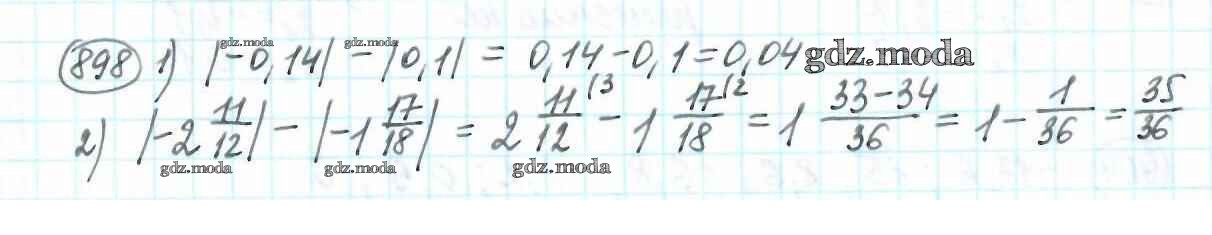 898 1) |-0,14| - |0,1| = 0,14 - 0,1 = 0,04 gdz.moda
gdz.moda gdz.moda
2) |-2 11/12| - |-1 17/18| = 2 11/12 (3 - 1 17/18 (2 = 1 33-34/36 = 1 - 1/36 = 35/36
gdz.moda gdz.moda gdz.moda